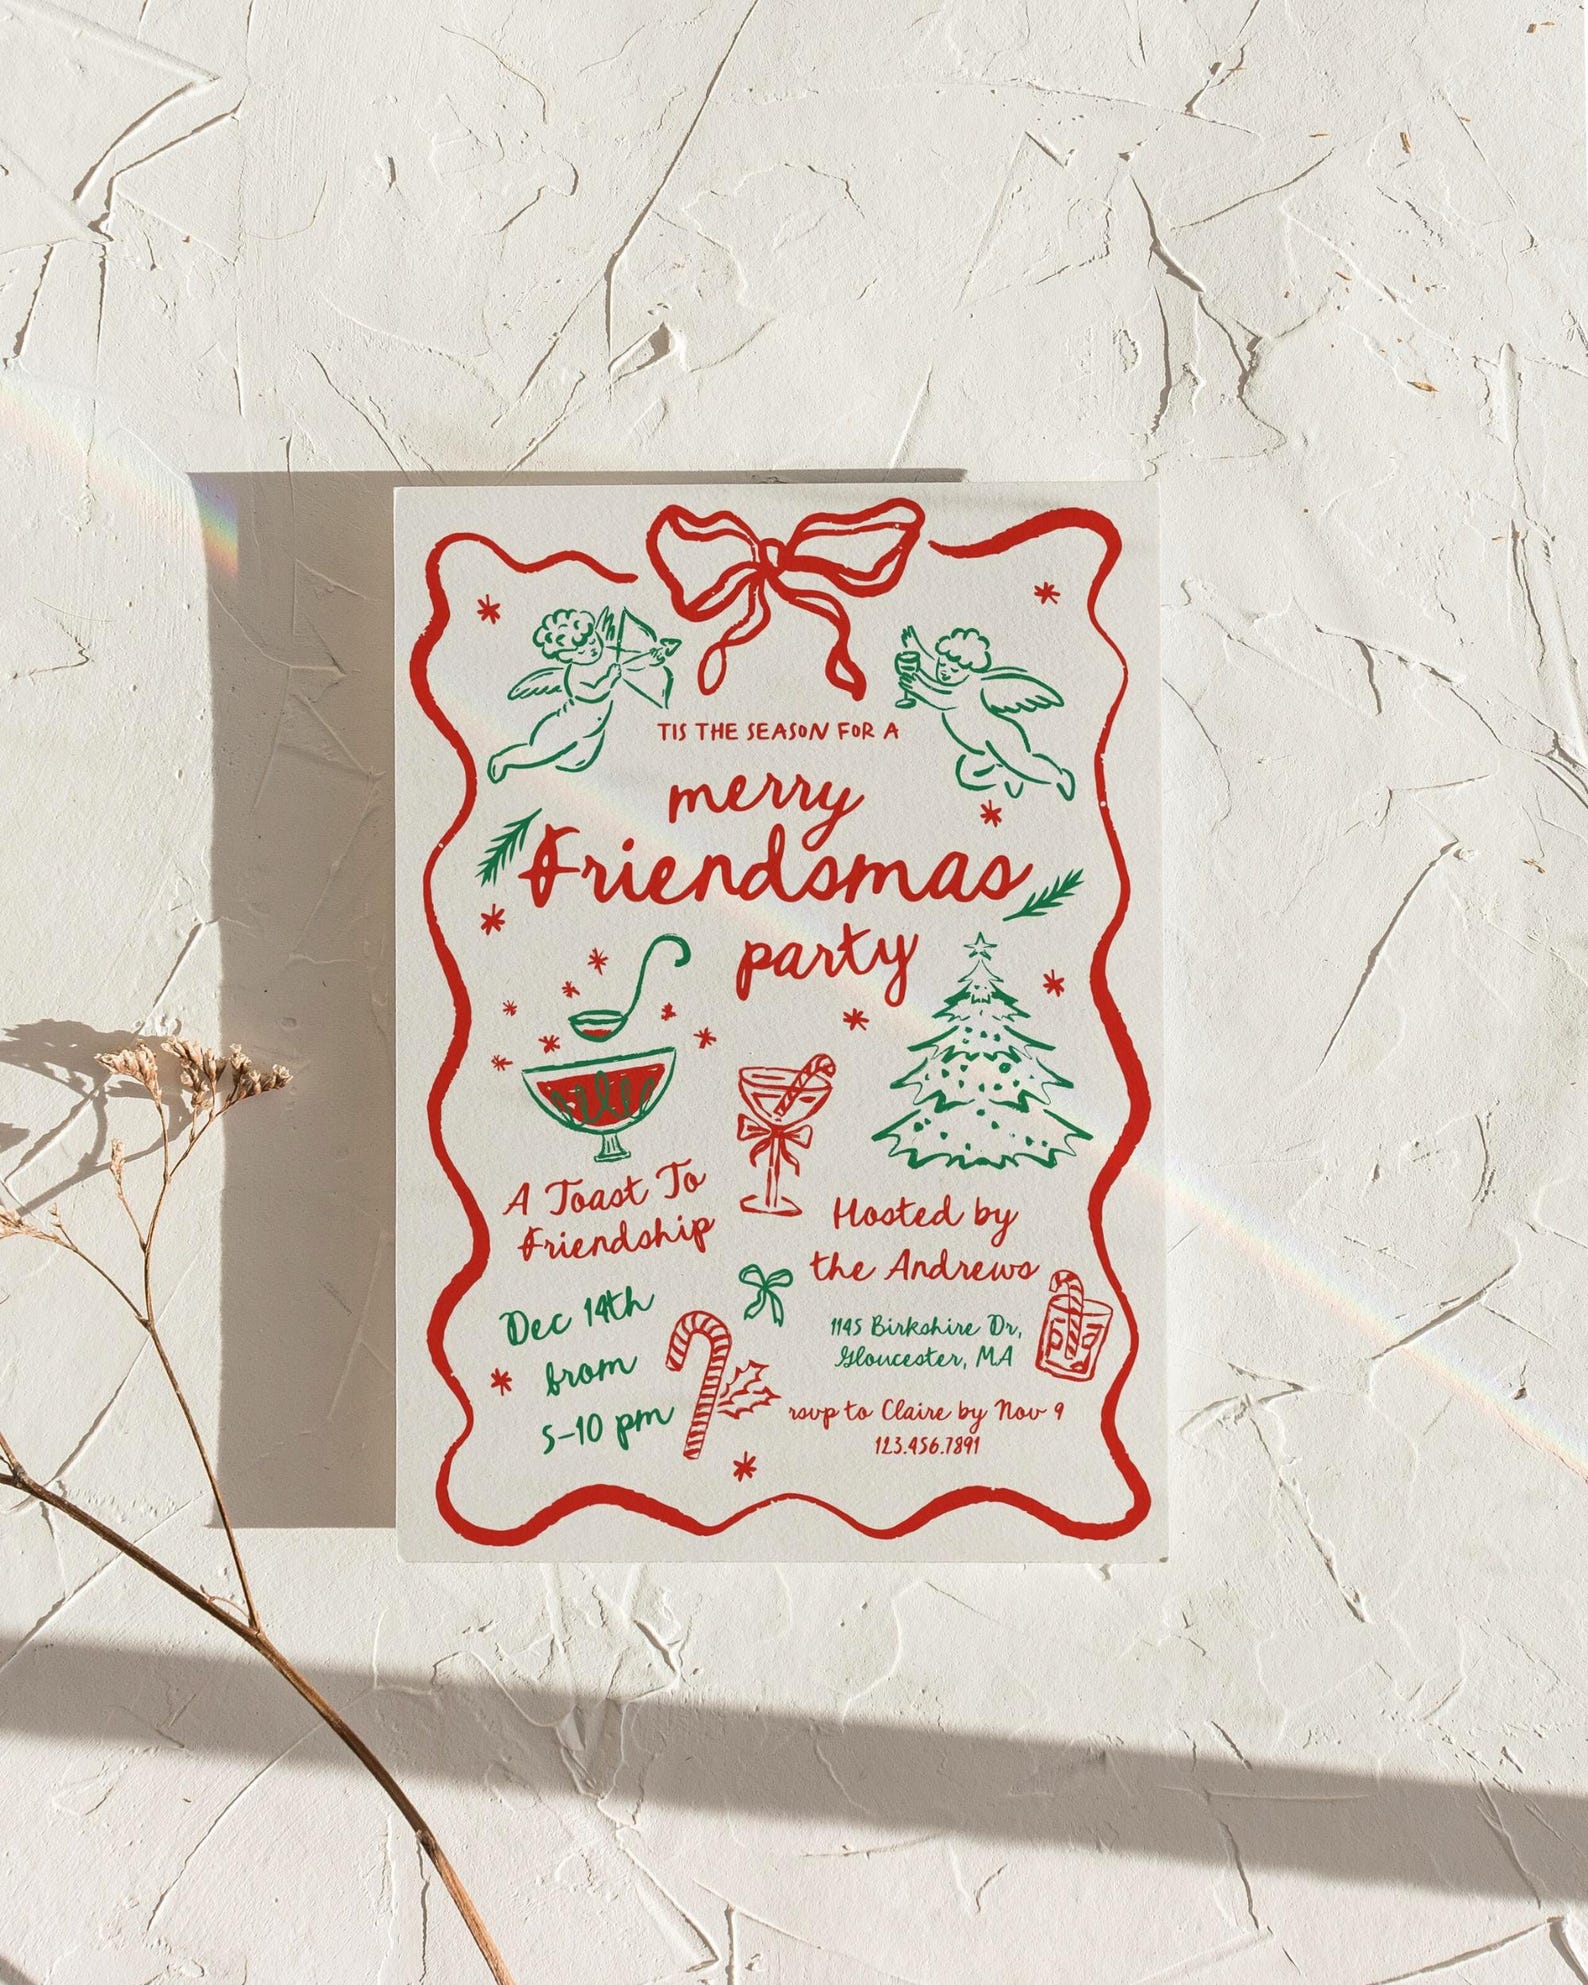 TIS THE SEASON FOR A
merry
Friendsmas
party
A Toast To
Friendship
Dec 14th
from
5-10 pm
Hosted by
the Andrews
1145 Birkshire Dr,
Gloucester, MA
rsvp to Claire by Nov 9
123.456.7891